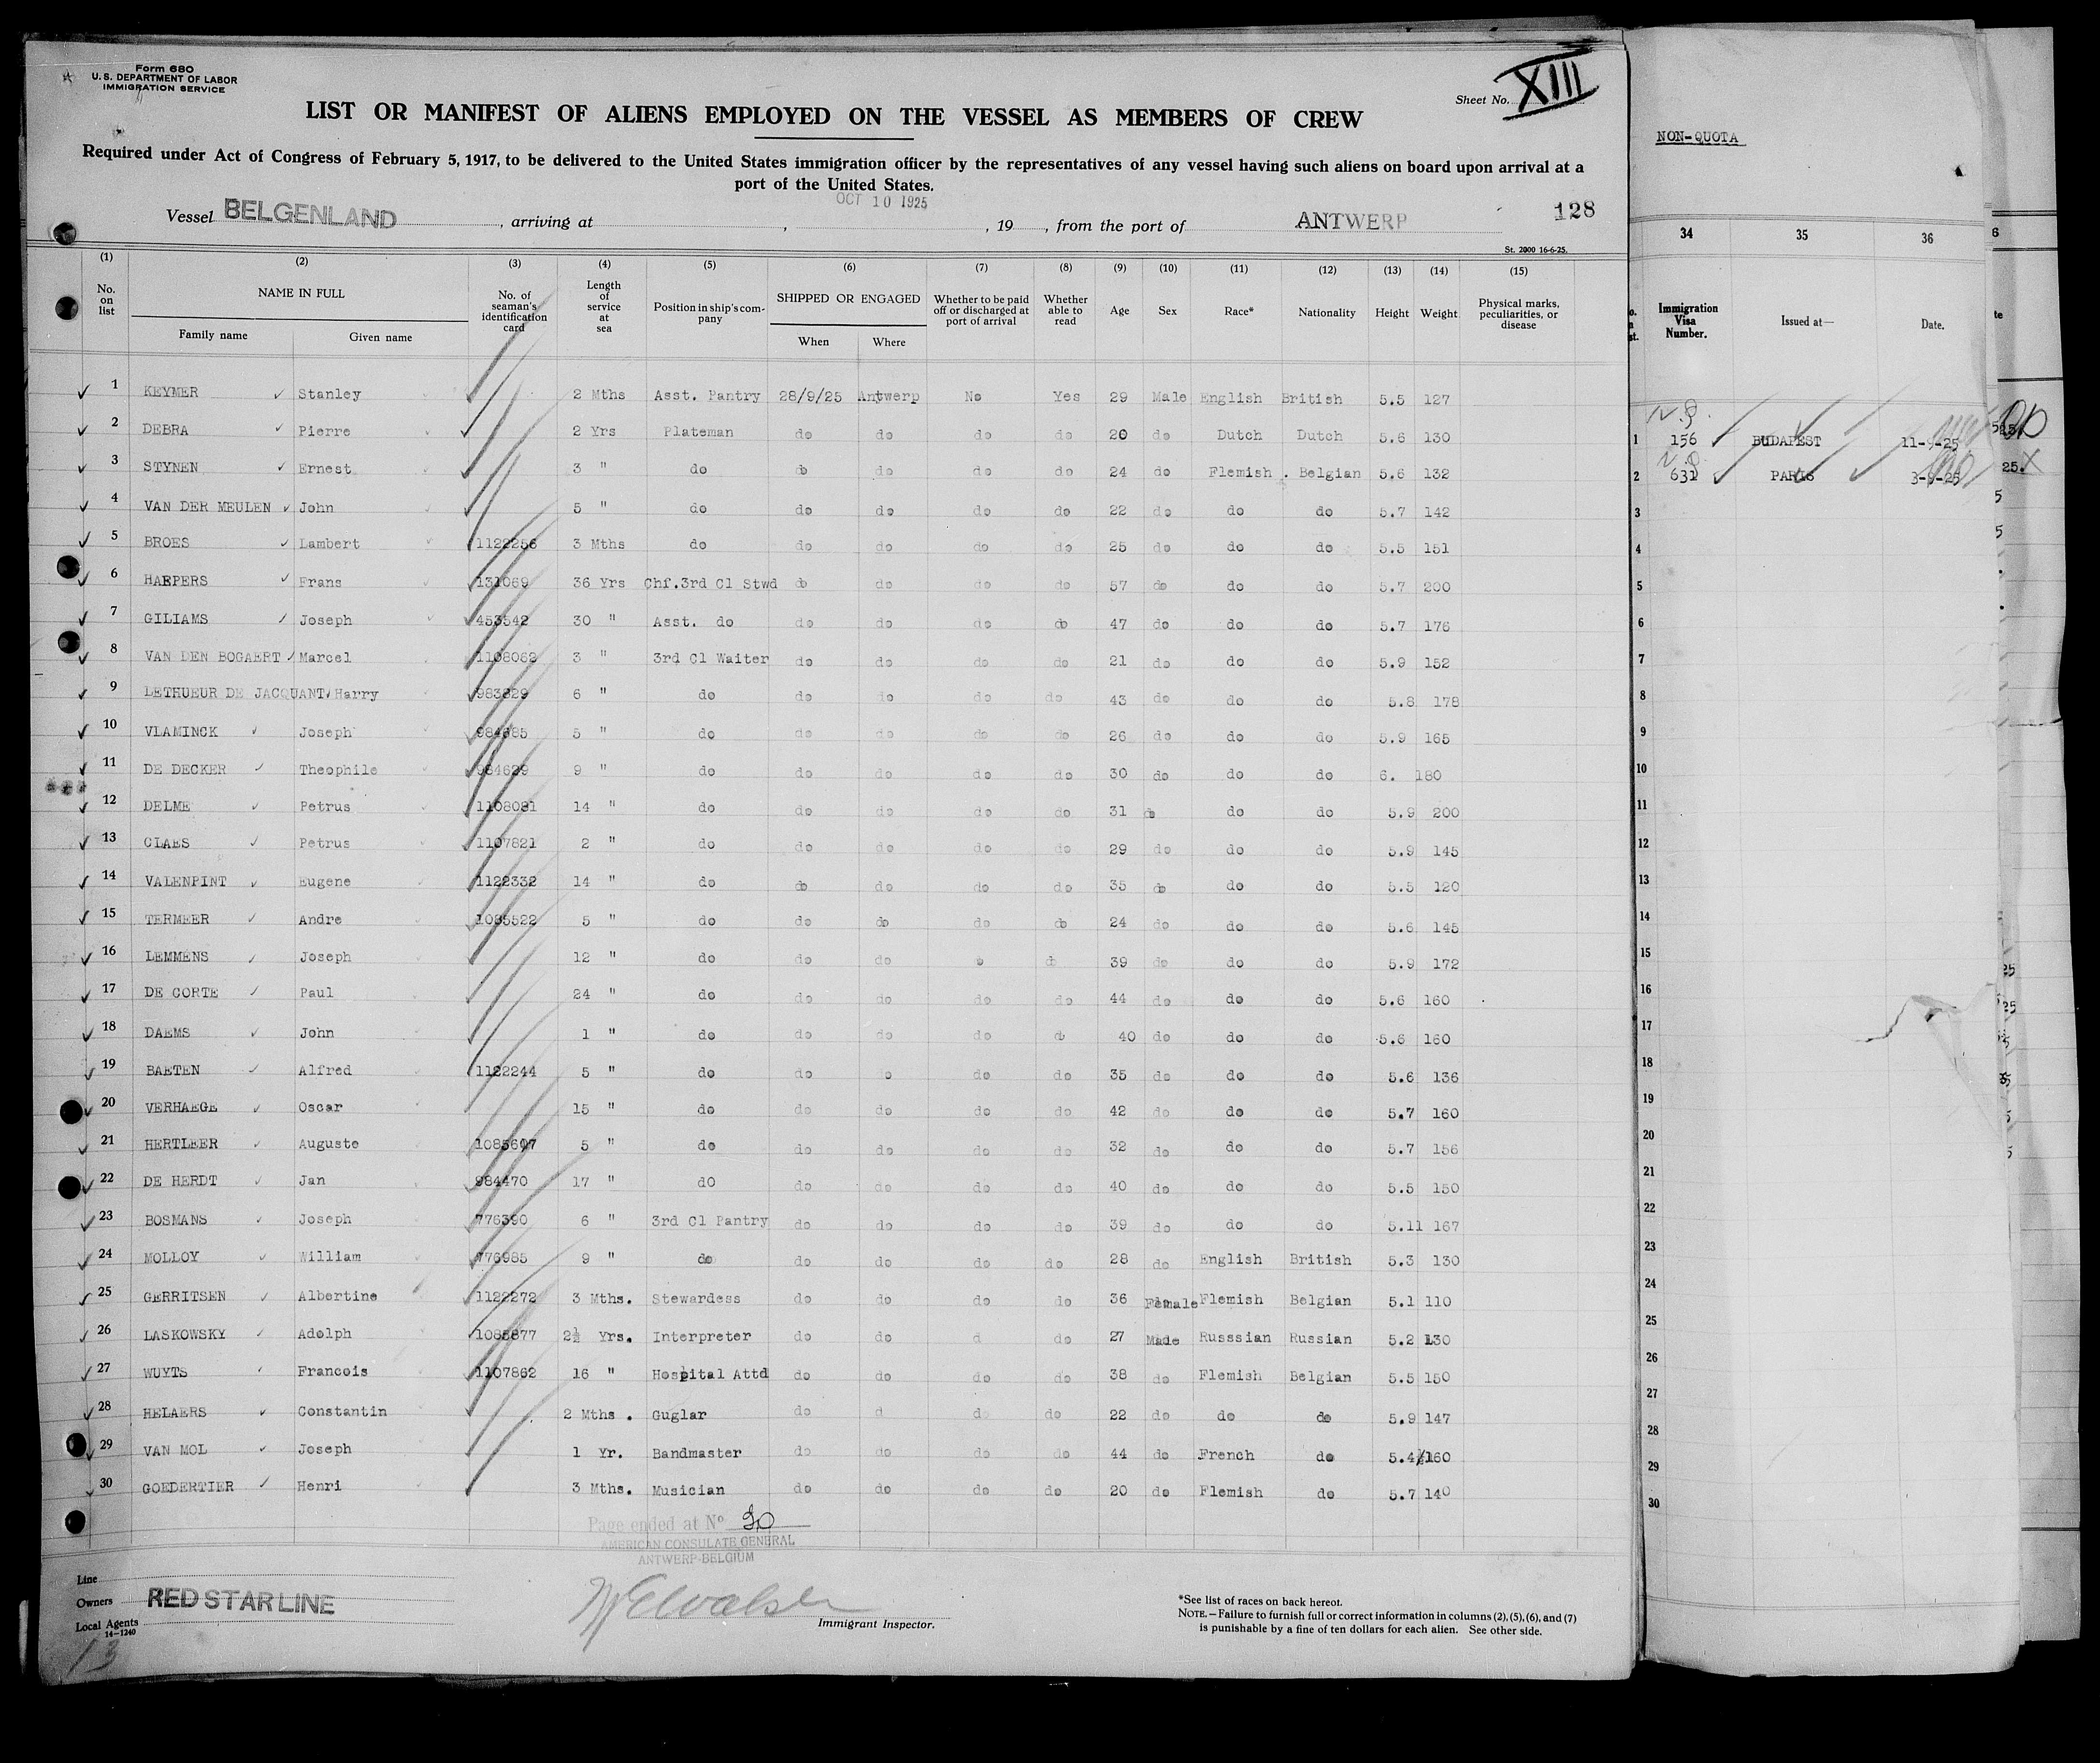 Form 680
U. S. DEPARTMENT OF LABOR
IMMIGRATION SERVICE
Sheet No. XIII
LIST OR MANIFEST OF ALIENS EMPLOYED ON THE VESSEL AS MEMBERS OF CREW
Required under Act of Congress of February 5, 1917, to be delivered to the United States immigration officer by the representatives of any vessel having such aliens on board upon arrival at a
port of the United States.
OCT 10 1925
Vessel BELGENLAND , arriving at , , 19 , from the port of ANTWERP 128
St. 2000 16-6-25.
(1) (2) (3) (4) (5) (6) (7) (8) (9) (10) (11) (12) (13) (14) (15)
No. on list NAME IN FULL Family name Given name No. of seaman's identification card Length of service at sea Position in ship's company SHIPPED OR ENGAGED When Where Whether to be paid off or discharged at port of arrival Whether able to read Age Sex Race* Nationality Height Weight Physical marks, peculiarities, or disease
1 KEYMER Stanley 2 Mths Asst. Pantry 28/9/25 Antwerp No Yes 29 Male English British 5.5 127
2 DEBRA Pierre 2 Yrs Plateman do do do do 20 do Dutch Dutch 5.6 130
3 STYNEN Ernest 3 " do do do do do 24 do Flemish . Belgian 5.6 132
4 VAN DER MEULEN John 5 " do do do do do 22 do do do 5.7 142
5 BROES Lambert 1122256 3 Mths do do do do do 25 do do do 5.5 151
6 HAEPERS Frans 131069 36 Yrs Chf.3rd Cl Stwd do do do do 57 do do do 5.7 200
7 GILIAMS Joseph 453542 30 " Asst. do do do do do 47 do do do 5.7 176
8 VAN DEN BOGAERT Marcel 1108062 3 " 3rd Cl Waiter do do do do 21 do do do 5.9 152
9 LETHUEUR DE JACQUANT Harry 983829 6 " do do do do do 43 do do do 5.8 178
10 VLAMINCK Joseph 984685 5 " do do do do do 26 do do do 5.9 165
11 DE DECKER Theophile 984629 9 " do do do do do 30 do do do 6. 180
12 DELME Petrus 1108081 14 " do do do do do 31 do do do 5.9 200
13 CLAES Petrus 1107821 2 " do do do do do 29 do do do 5.9 145
14 VALENPINT Eugene 1122332 14 " do do do do do 35 do do do 5.5 120
15 TERMEER Andre 1085522 5 " do do do do do 24 do do do 5.6 145
16 LEMMENS Joseph 12 " do do do o do 39 do do do 5.9 172
17 DE CORTE Paul 24 " do do do do do 44 do do do 5.6 160
18 DAEMS John 1 " do do do do do 40 do do do 5.6 160
19 BAETEN Alfred 1122244 5 " do do o do do 35 do do do 5.6 136
20 VERHAEGE Oscar 15 " do do do do do 42 do do do 5.7 160
21 HERTLEER Auguste 1085607 5 " do do do do do 32 do do do 5.7 156
22 DE HERDT Jan 984470 17 " dO do do do do 40 do do do 5.5 150
23 BOSMANS Joseph 776390 6 " 3rd Cl Pantry do do do do 39 do do do 5.11 167
24 MOLLOY William 776985 9 " do do do do do 28 do English British 5.3 130
25 GERRITSEN Albertine 1122272 3 Mths. Stewardess do do do do 36 Female Flemish Belgian 5.1 110
26 LASKOWSKY Adolph 1085877 2½ Yrs. Interpreter do do d do 27 Male Russsian Russian 5.2 130
27 WUYTS Francois 1107862 16 " Hospital Attd do do do do 38 do Flemish Belgian 5.5 150
28 HELAERS Constantin 2 Mths . Guglar do d do do 22 do do do 5.9 147
29 VAN MOL Joseph 1 Yr. Bandmaster do do do do 44 do French do 5.4 160
30 GOEDERTIER Henri 3 Mths. Musician do do do do 20 do Flemish do 5.7 140
Page ended at No 30
AMERICAN CONSULATE GENERAL
ANTWERP-BELGIUM
Line
Owners RED STAR LINE
Local Agents
14-1240
13
Immigrant Inspector.
*See list of races on back hereof.
NOTE.—Failure to furnish full or correct information in columns (2), (5), (6), and (7)
is punishable by a fine of ten dollars for each alien. See other side.
NON-QUOTA
34 35 36
Immigration Visa Number. Issued at— Date.
1 156 BUDAPEST
2 631 PARIS
3
4
5
6
7
8
9
10
11
12
13
14
15
16
17
18
19
20
21
22
23
24
25
26
27
28
29
30